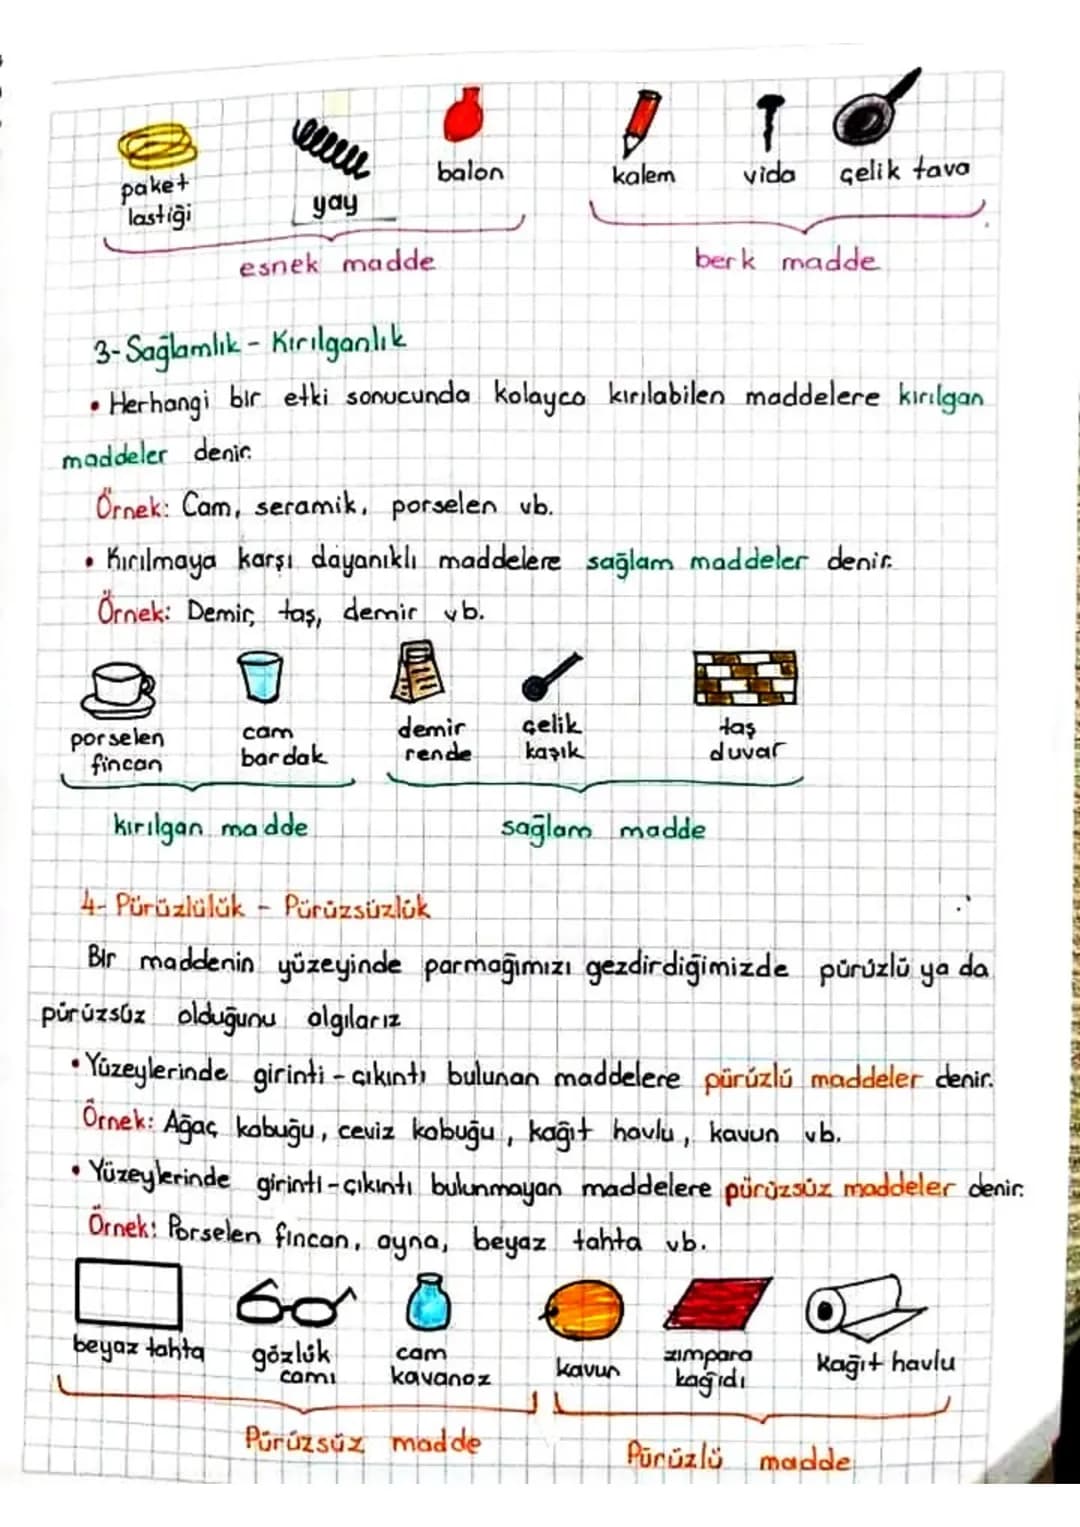 paket lastiği
yay
balon
kalem
vida
çelik tava
esnek madde
berk madde
3- Sağlamlık - Kırılganlık
• Herhangi bir etki sonucunda kolayca kırılabilen maddelere kırılgan
maddeler denir.
Örnek: Cam, seramik, porselen vb.
• Kırılmaya karşı dayanıklı maddelere sağlam maddeler denir.
Örnek: Demir, taş, demir vb.
porselen fincan
cam bardak
demir rende
çelik kaşık
taş duvar
kırılgan madde
sağlam madde
4- Pürüzlülük - Pürüzsüzlük
Bir maddenin yüzeyinde parmağımızı gezdirdiğimizde pürüzlü ya da
pürüzsüz olduğunu algılarız
• Yüzeylerinde girinti - çıkıntı bulunan maddelere pürüzlü maddeler denir.
Örnek: Ağaç kabuğu, ceviz kabuğu, kağıt havlu, kavun vb.
• Yüzeylerinde girinti - çıkıntı bulunmayan maddelere pürüzsüz maddeler denir.
Örnek: Porselen fincan, ayna, beyaz tahta vb.
beyaz tahta
gözlük camı
cam kavanoz
kavun
zımpara kağıdı
kağıt havlu
Pürüzsüz madde
Pürüzlü madde